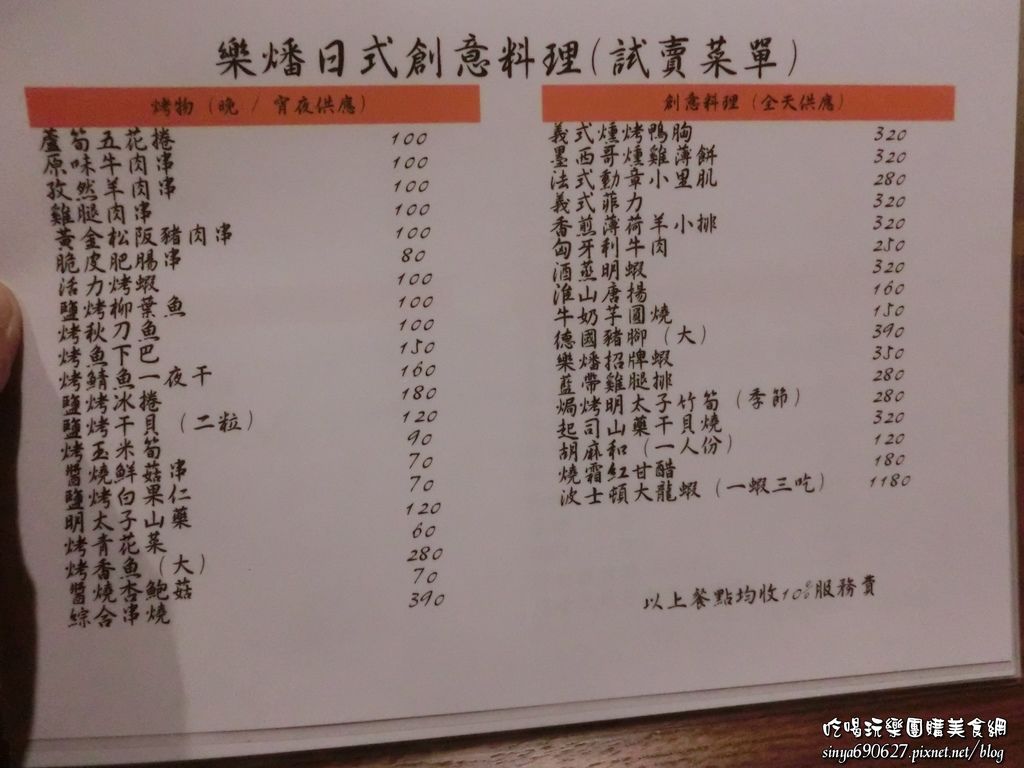 樂燔日式創意料理(試賣菜單)
烤物（晚 / 宵夜供應）
蘆筍五花捲 100
原味牛肉串 100
孜然羊肉串 100
雞腿肉串 100
黃金松阪豬肉串 100
脆皮肥腸串 80
活力烤蝦 100
鹽烤柳葉魚 100
烤秋刀魚 100
烤魚下巴 150
烤鯖魚一夜干 160
鹽烤冰捲 180
鹽烤干貝（二粒） 120
烤玉米筍 90
醬燒鮮菇串 70
鹽烤白果仁 70
明太子山藥 120
烤青花菜 60
烤香魚（大） 280
醬燒杏鮑菇 70
綜合串燒 390
創意料理（全天供應）
義式燻烤鴨胸 320
墨西哥燻雞薄餅 320
法式動章小里肌 280
義式菲力 320
香煎薄荷羊小排 320
匈牙利牛肉 250
酒蒸明蝦 320
淮山唐揚 160
牛奶芋圓燒 150
德國豬腳（大） 390
樂燔招牌蝦 350
藍帶雞腿排 280
焗烤明太子竹筍（季節） 280
起司山藥干貝燒 320
胡麻和（一人份） 120
燒霜紅甘醋 180
波士頓大龍蝦（一蝦三吃） 1180
以上餐點均收10%服務費
吃喝玩樂團購美食網
sinya690627.pixnet.net/blog